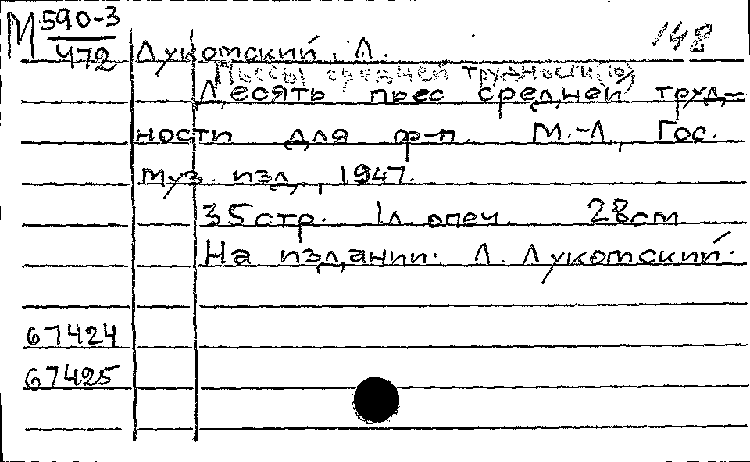 М 590-3 148
472 Лукомский, Л.
Пьесы средней трудности (10)
Десять пьес средней труд-
ности для ф-п. М.-Л., Гос.
муз. изд., 1947.
35 стр. 1 л. опеч. 28 см
На издании: Л. Лукомский.
67424
67425